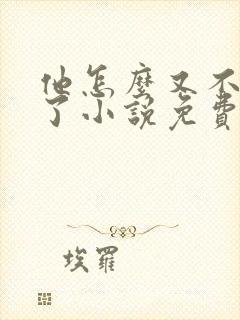 他怎麼又不
了小說免費
埃羅